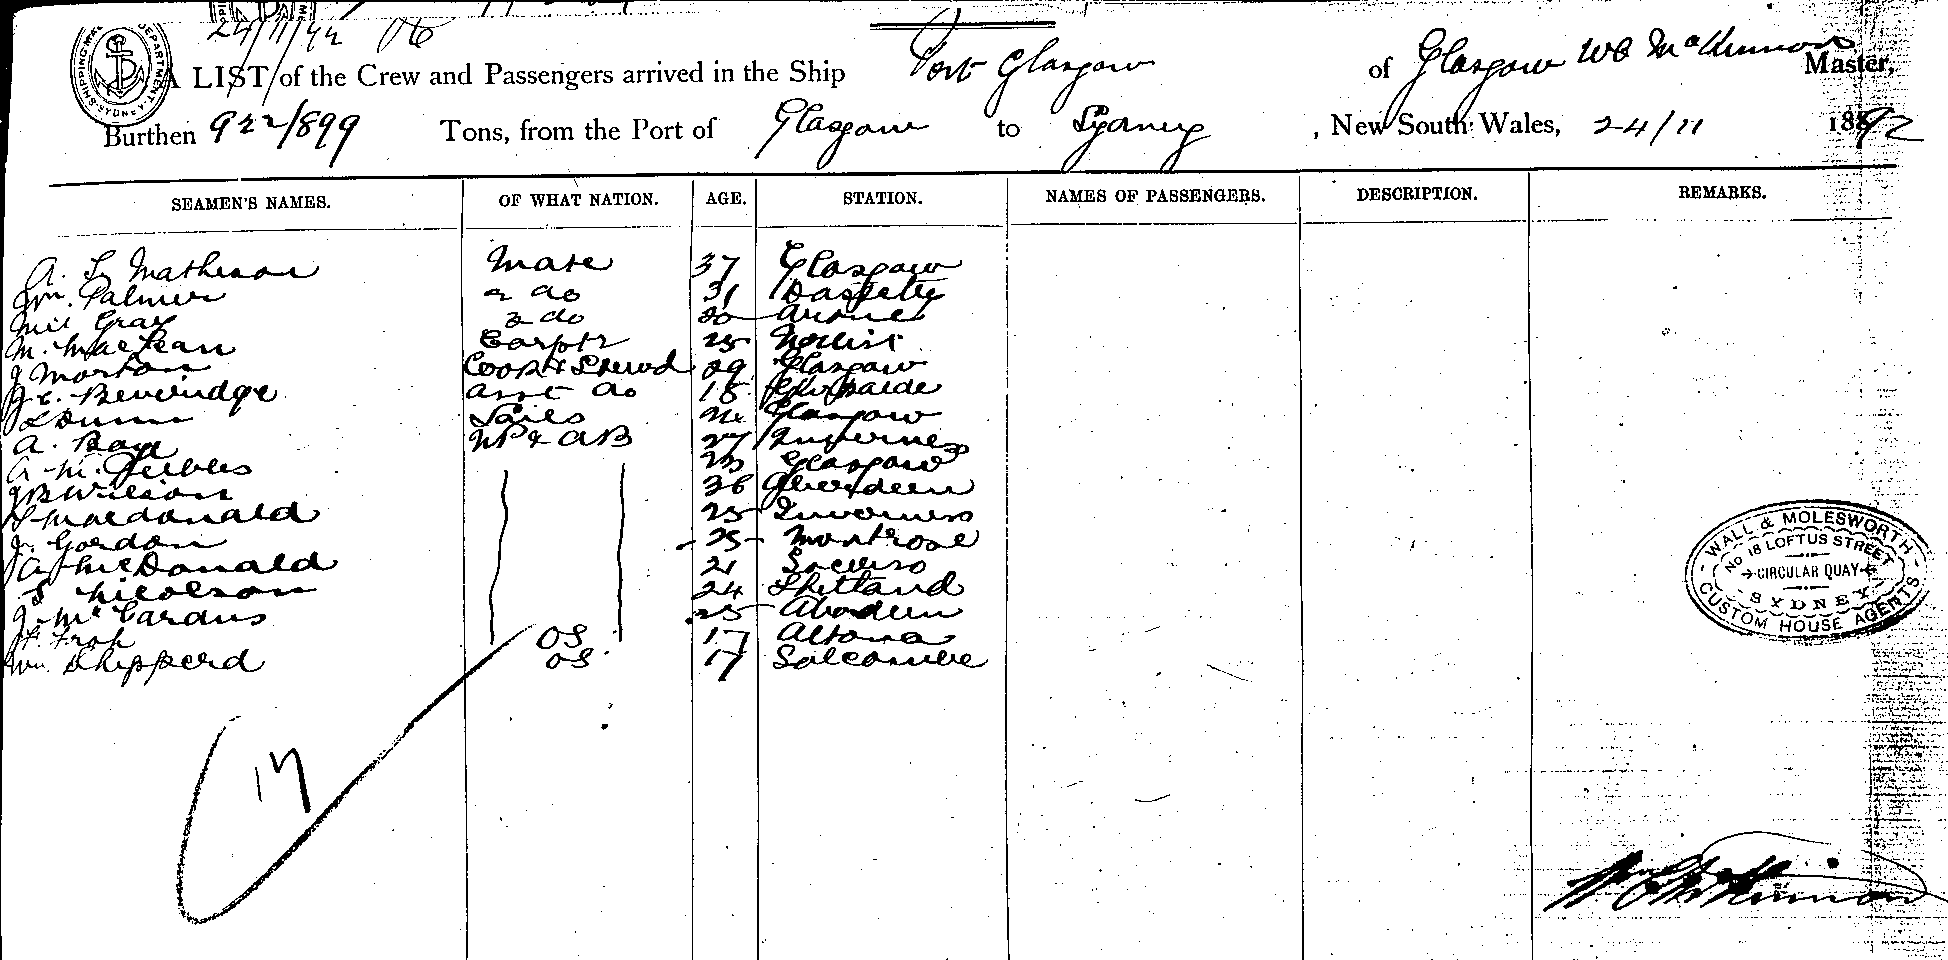 24/11/92
A LIST of the Crew and Passengers arrived in the Ship Port Glasgow of Glasgow WC McKinnon Master,
Burthen 922/899 Tons, from the Port of Glasgow to Sydney, New South Wales, 24/11 1892
SEAMEN'S NAMES. OF WHAT NATION. AGE. STATION. NAMES OF PASSENGERS. DESCRIPTION. REMARKS.
A. Matheson Mate 37 Glasgow
Wm. Palmer 2 do 31
Gray 3 do
M. MacLean Carptr 25
J Morton Cook & Stewd 29 Glasgow
Beveridge asst do 18
Dunn Sails Glasgow
A. AB 27 Inverness
A. M. Peebles 23 Glasgow
J B Wilson 36 Aberdeen
Macdonald 25 Inverness
J. Gordon 25 Montrose
A McDonald 21
Nicolson 24 Shetland
J. Mc Cardus 25 Aberdeen
OS 17 Altona
Wm. Shipperd OS 17 Salcombe
17
WALL & MOLESWORTH
No 18 LOFTUS STREET
CIRCULAR QUAY
SYDNEY
CUSTOM HOUSE AGENTS
W C McKinnon